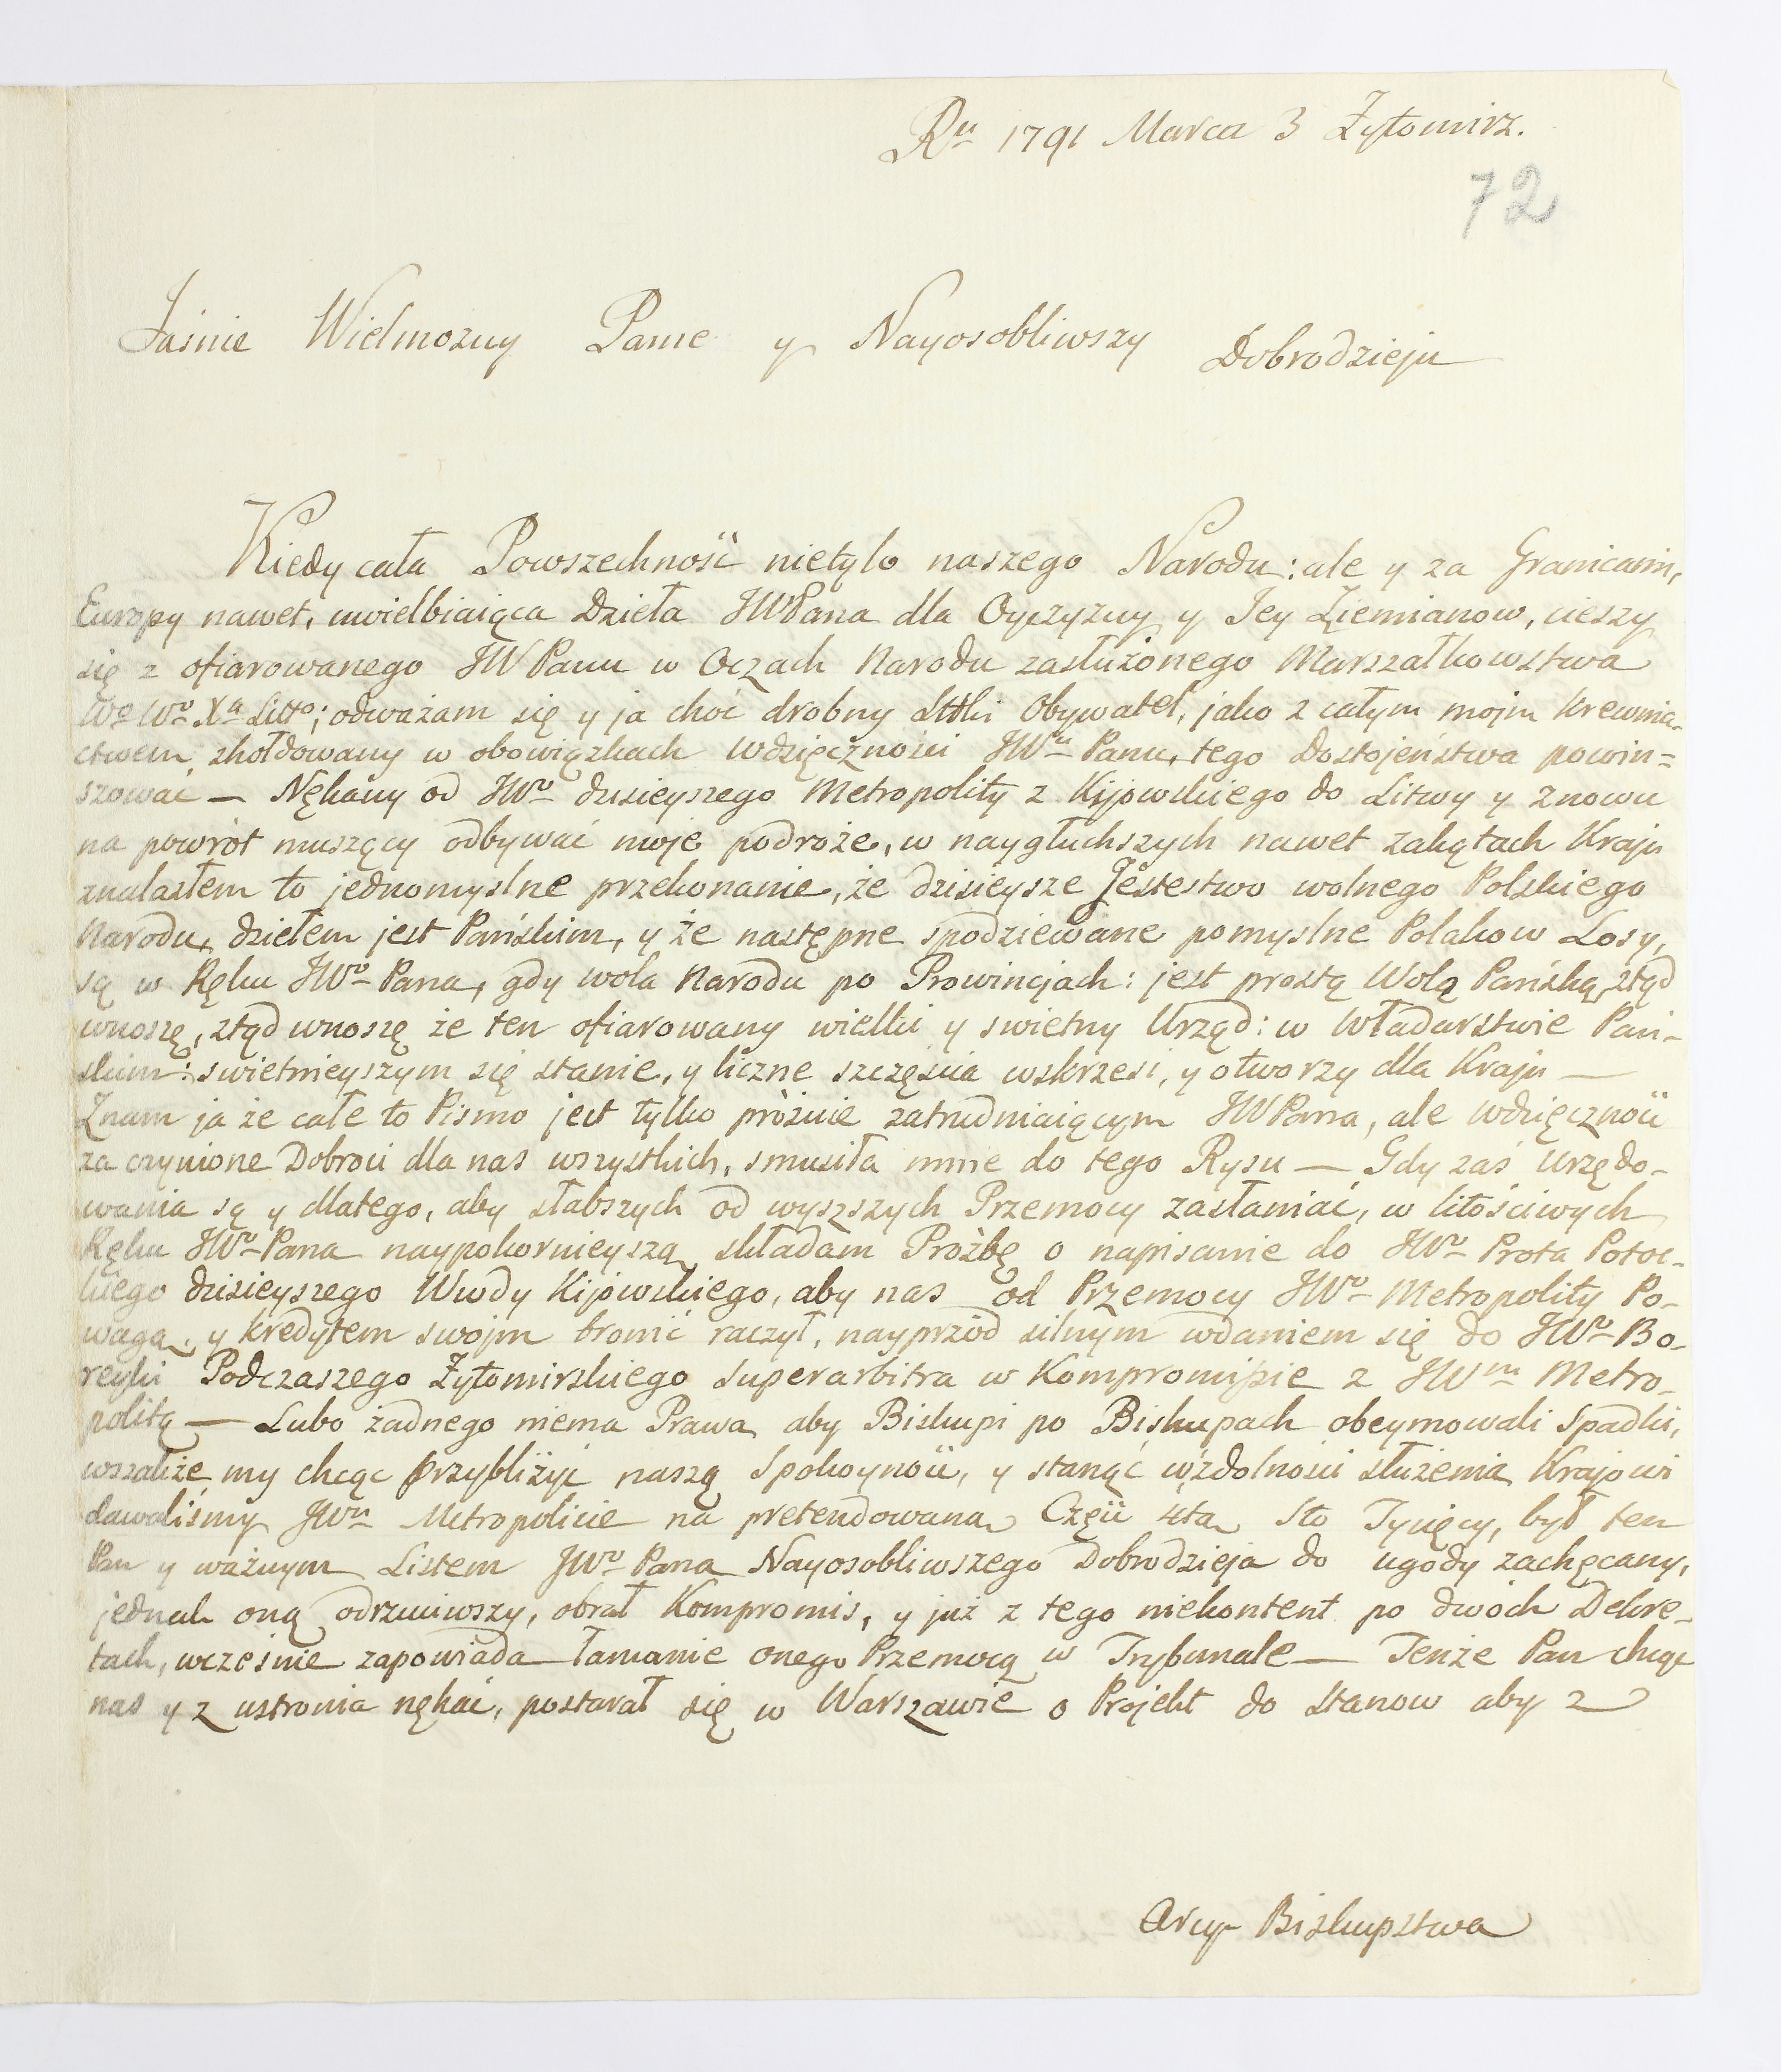 Ru 1791 Marca 3 Żytomirz.
72
Jaśnie Wielmozny Panie y Nayosobliwszy Dobrodzieju
Kiedy cała Powszechność nietylo naszego Narodu: ale y za Granicami,
Europy nawet, uwielbiaiąca Dzieła JWPana dla Oyczyzny y Jey Ziemianow, cieszy
się z ofiarowanego JWPanu w Oczach Narodu zasłużonego Marszałkowstwa
Wo Wo Xa Litto; odważam się y ja choć drobny Obywatel, jako z całym mojm krewnia-
ctwem zhołdowany w obowiązkach wdzięczności JWu Panu, tego Dostojeństwa powin=
szować — Nękany od JWo dzisieyszego Metropolity z Kijowskiego do Litwy y znowu
na powrót muszący odbywać moje podroże, w naygłuchszych nawet zakątach Kraju
znalazłem to jednomyslne przekonanie, że dzisieysze Jestestwo wolnego Polskiego
Narodu, dziełem jest Pańskim, y że następne spodziewane pomyslne Polakow Losy,
są w Ręku JWo Pana, gdy wola Narodu po Prowincjach: jest prostą Wolą Pańską, ztąd
wnoszę, ztąd wnoszę że ten ofiarowany wielki y swietny Urząd: w Władarstwie Pań-
skim: swietnieyszym się stanie, y liczne szczęścia wskrzesi, y otworzy dla Kraju —
Znam ja że całe to Pismo jest tylko próżnie zatrudniaiącym JWPana, ale wdzięczność
za czynione Dobroci dla nas wszystkich, smusiła mnie do tego Rysu — Gdy zaś Urzędo-
wania są y dlatego, aby słabszych od wyszszych Przemocy zasłaniać, w litościwych
Ręku JWo Pana naypokornieyszą składam Prożbę o napisanie do JWo Prota Potoc-
kiego dzisieyszego Wwdy Kijowskiego, aby nas od Przemocy JWo Metropolity Po-
wagą, y kredytem swojm bronić raczył, nayprzód silnym wdaniem się do JWo Bo-
reyki Podczaszego Żytomirskiego Superarbitra w Kompromissie z JWm Metro-
politą — Lubo żadnego niema Prawa aby Biskupi po Biskupach obeymowali Spadki,
wszakże my chcąc przybliżyć naszą Spokoyność, y stanąć w zdolności służenia Krajowi
dawaliśmy JWu Metropolicie na pretendowaną Część 4tą Sto Tysięcy, był ten
Pan y ważnym Listem JWo Pana Nayosobliwszego Dobrodzieja do ugody zachęcany,
jednak oną odrzuciwszy, obrał Kompromis, y już z tego niekontent po dwóch Dekre-
tach, wcześnie zapowiada łamanie onego Przemocą w Trybunale — Tenże Pan chcąc
nas y z ustronia nękać, postarał się w Warszawie o Projekt do Stanow aby z
Arcy-Biskupstwa